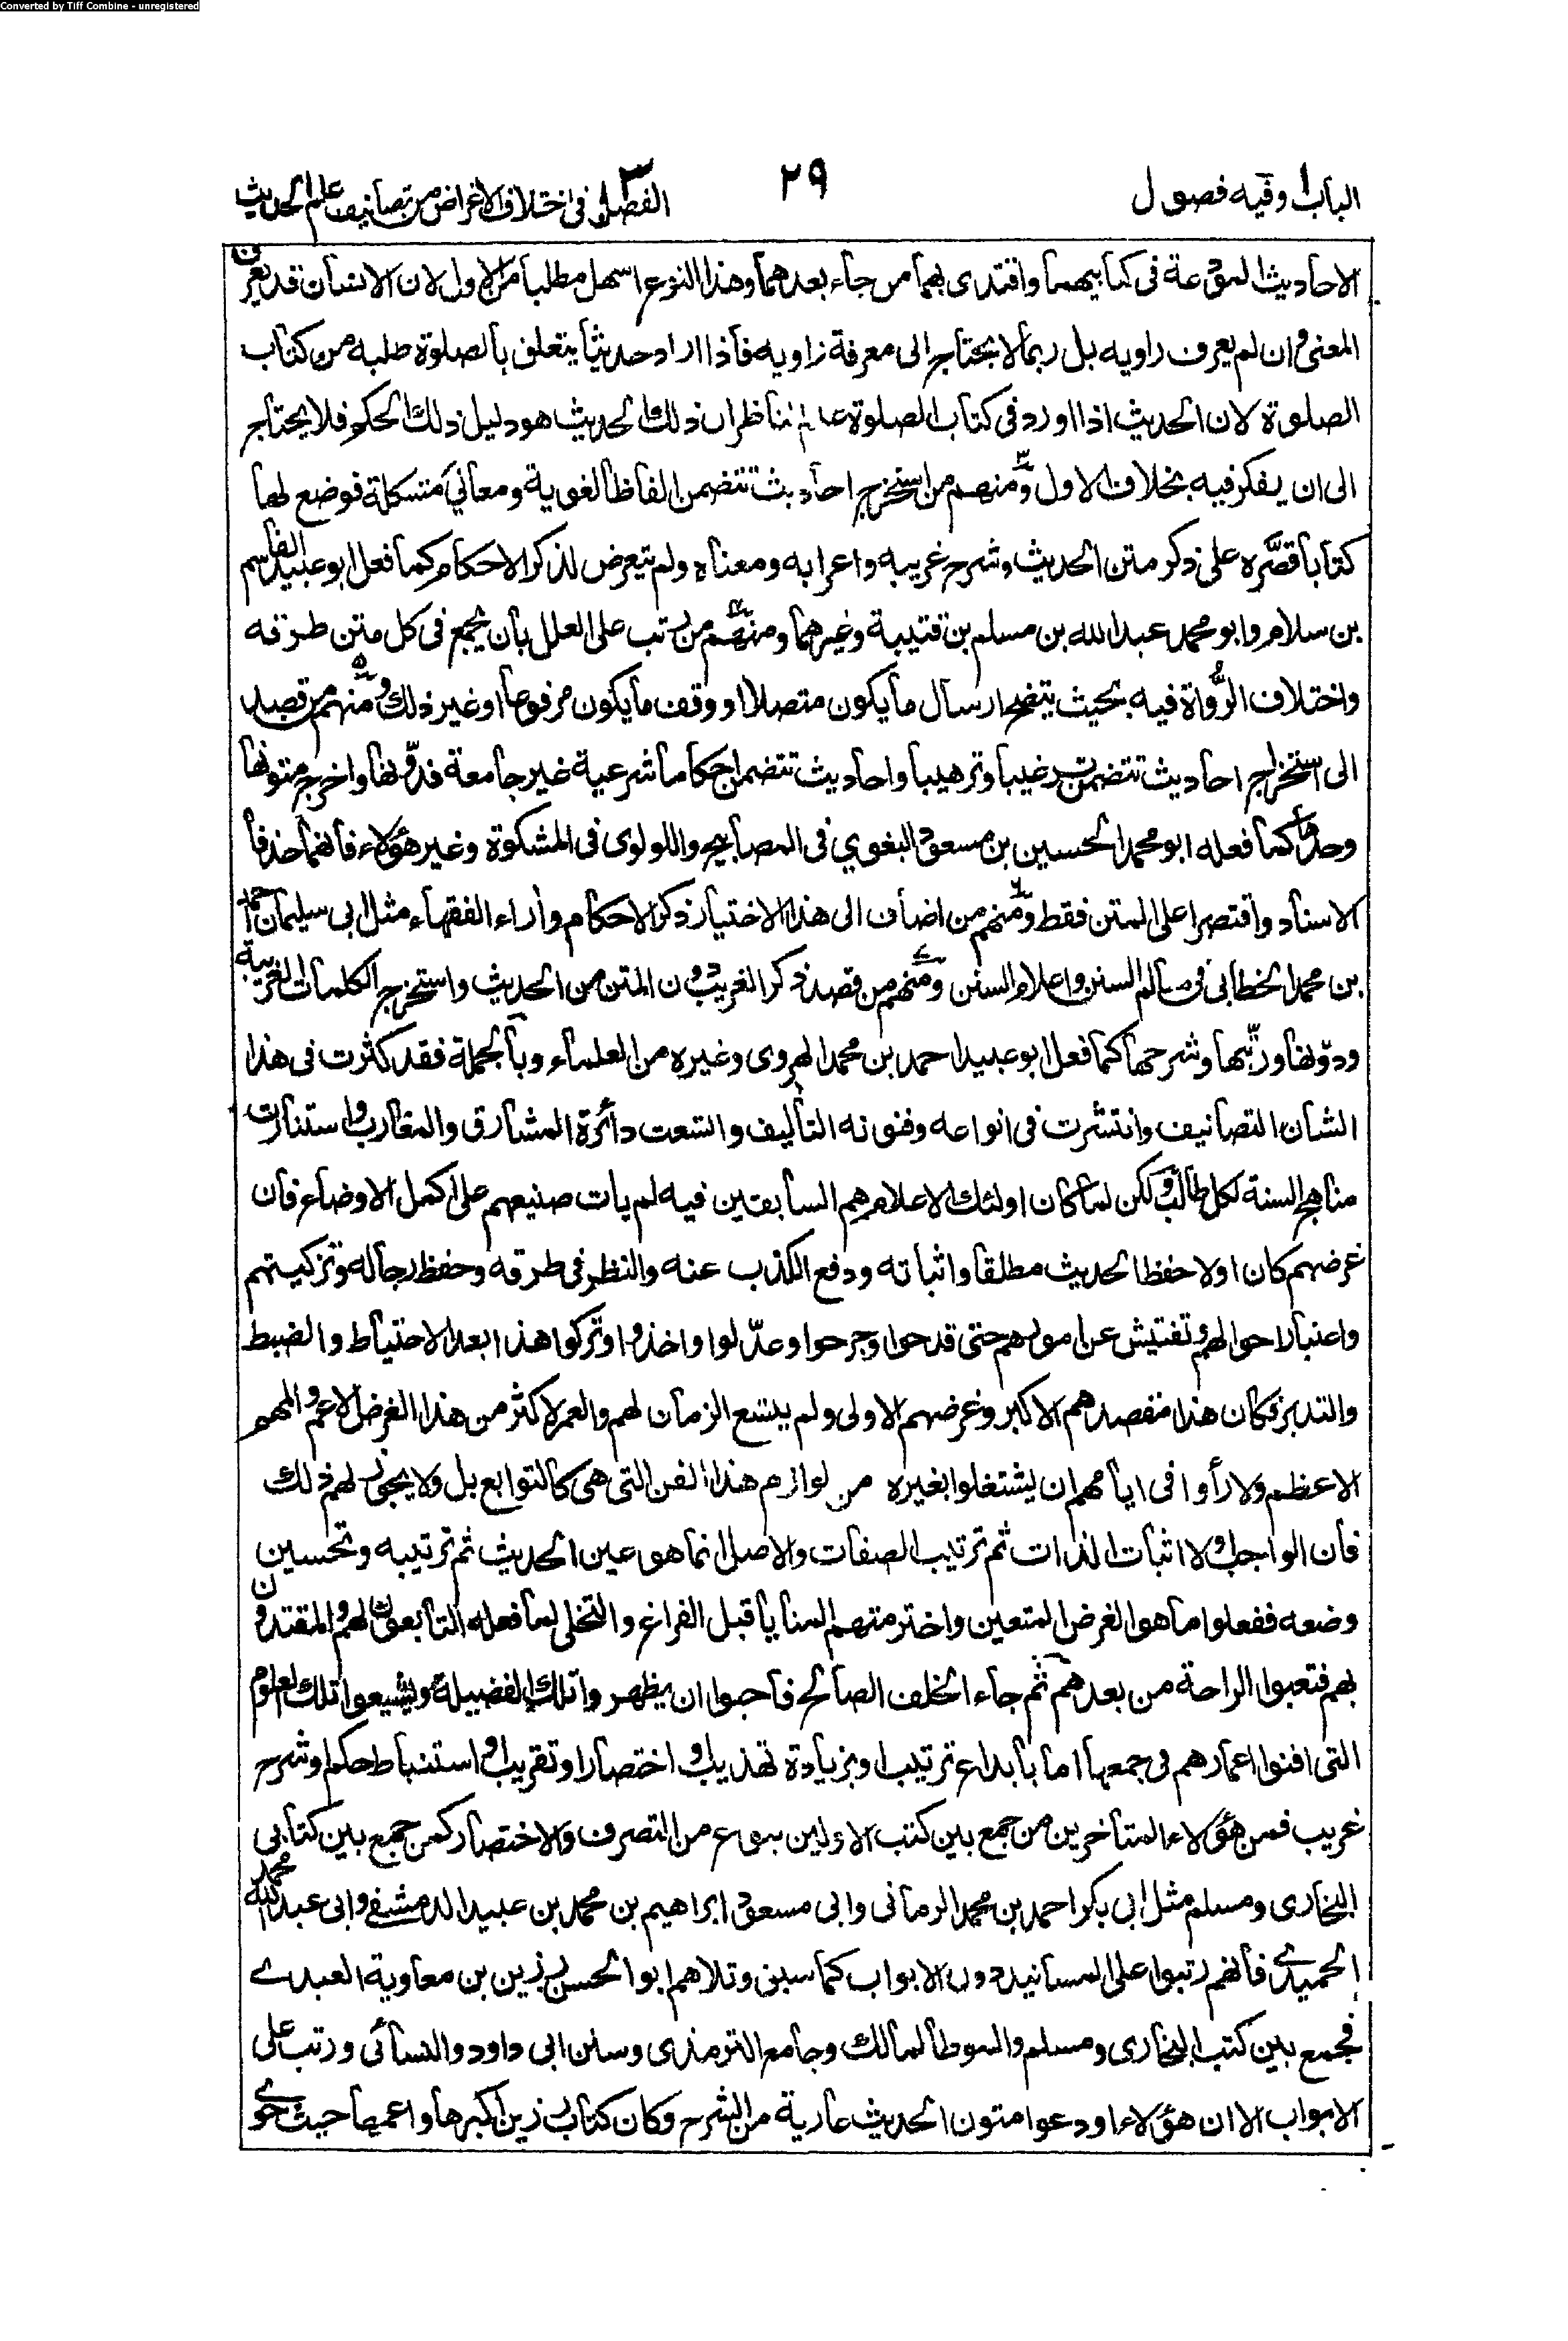 Converted by Tiff Combine - unregistered
الباب ١ وفيه فصول
٢٩
الفصل ٣ فى اختلاف الاغراض من تصانيف علم الحديث
الاحاديث المودعة فى كتابيهما واقتدى بهما من جاء بعدهما وهذا النوع اسهل مطلبا من الاول لان الانسان قد يعرف
المعنى وان لم يعرف راويه بل ربما لا يحتاج الى معرفة راويه فاذا اراد حديثا يتعلق بالصلوة طلبه من كتاب
الصلوة لان الحديث اذا اورد فى كتاب الصلوة علم الناظر ان ذلك الحديث هو دليل ذلك الحكم فلا يحتاج
الى ان يفكر فيه بخلاف الاول ومنهم ٣ من استخرج احاديث تتضمن الفاظا لغوية ومعانى مشكلة فوضع لها
كتابا قصّره على ذكر متن الحديث وشرح غريبه واعرابه ومعناه ولم يتعرض لذكر الاحكام كما فعل ابو عبيد القاسم
بن سلام وابو محمد عبد الله بن مسلم بن قتيبة وغيرهما ومنهم ٤ من رتب على العلل بان يجمع فى كل متن طرقه
واختلاف الرواة فيه بحيث يتضح ارسال ما يكون متصلا او وقف ما يكون مرفوعا او غير ذلك ومنهم ٥ من قصد
الى استخراج احاديث تتضمن ترغيبا وترهيبا واحاديث تتضمن احكاما شرعية غير جامعة فدوّنها واخرج متونها
وحدها كما فعله ابو محمد الحسين بن مسعود البغوي فى المصابيح واللولوى فى المشكوة وغير هؤلاء فانهما حذفا
الاسناد واقتصرا على المتن فقط ومنهم ٦ من اضاف الى هذا الاختيار ذكر الاحكام وأراء الفقهاء مثل ابى سليمان احمد
بن محمد الخطابى فى معالم السنن واعلام السنن ومنهم ٧ من قصد ذكر الغريب دون المتن من الحديث واستخرج الكلمات الغريبة
ودوّنها ورتّبها وشرحها كما فعل ابو عبيد احمد بن محمد الهروى وغيره من العلماء وبالجملة فقد كثرت فى هذا
الشان التصانيف وانتشرت فى انواعه وفنونه التأليف واتسعت دائرة المشارق والمغارب واستنارت
مناهج السنة لكل طالب ولكن لما كان اولئك الاعلام هم السابقين فيه لم يات صنيعهم على اكمل الاوضاع فان
غرضهم كان اولا حفظ الحديث مطلقا واثباته ودفع الكذب عنه والنظر فى طرقه وحفظ رجاله وتزكيتهم
واعتبار احوالهم وتفتيش عن امورهم حتى قدحوا وجرحوا وعدّلوا واخذوا وتركوا هذا بعد الاحتياط والضبط
والتدبر فكان هذا مقصدهم الاكبر وغرضهم الاولى ولم يتسع الزمان لهم والعمر لاكثر من هذا الغرض الاعم والمهم
الاعظم ولا رأوا فى ايامهم ان يشتغلوا بغيره من لوازم هذا الفن التى هى كالتوابع بل ولا يجوز لهم ذلك
فان الواجب اولا اثبات الذات ثم ترتيب الصفات والاصل انما هو عين الحديث ثم ترتيبه وتحسين
وضعه ففعلوا ما هو الغرض المتعين واخترمتهم المنايا قبل الفراغ والتخلى لما فعله التابعون لهم والمقتدون
بهم فتعبوا الراحة من بعدهم ثم جاء الخلف الصالح فاحبوا ان يظهروا تلك الفضيلة ويشيعوا تلك العلوم
التى افنوا اعمارهم فى جمعها اما بابداع ترتيب او بزيادة تهذيب او اختصار او تقريب او استنباط حكم وشرح
غريب فمن هؤلاء المتأخرين من جمع بين كتب الاولين بنوع من التصرف والاختصار كمن جمع بين كتابى
البخارى ومسلم مثل ابى بكر احمد بن محمد الرمانى وابى مسعود ابراهيم بن محمد بن عبيد الدمشقى وابى عبد الله محمد
الحميدى فانهم رتبوا على المسانيد دون الابواب كما سبق وتلاهم ابو الحسن رزين بن معاوية العبدرى
فجمع بين كتب البخارى ومسلم والموطا لمالك وجامع الترمذى وسنن ابى داود والنسائى ورتب على
الابواب الا ان هؤلاء اودعوا متون الحديث عارية من الشرح وكان كتاب رزين اكبرها واعمها حيث حوى